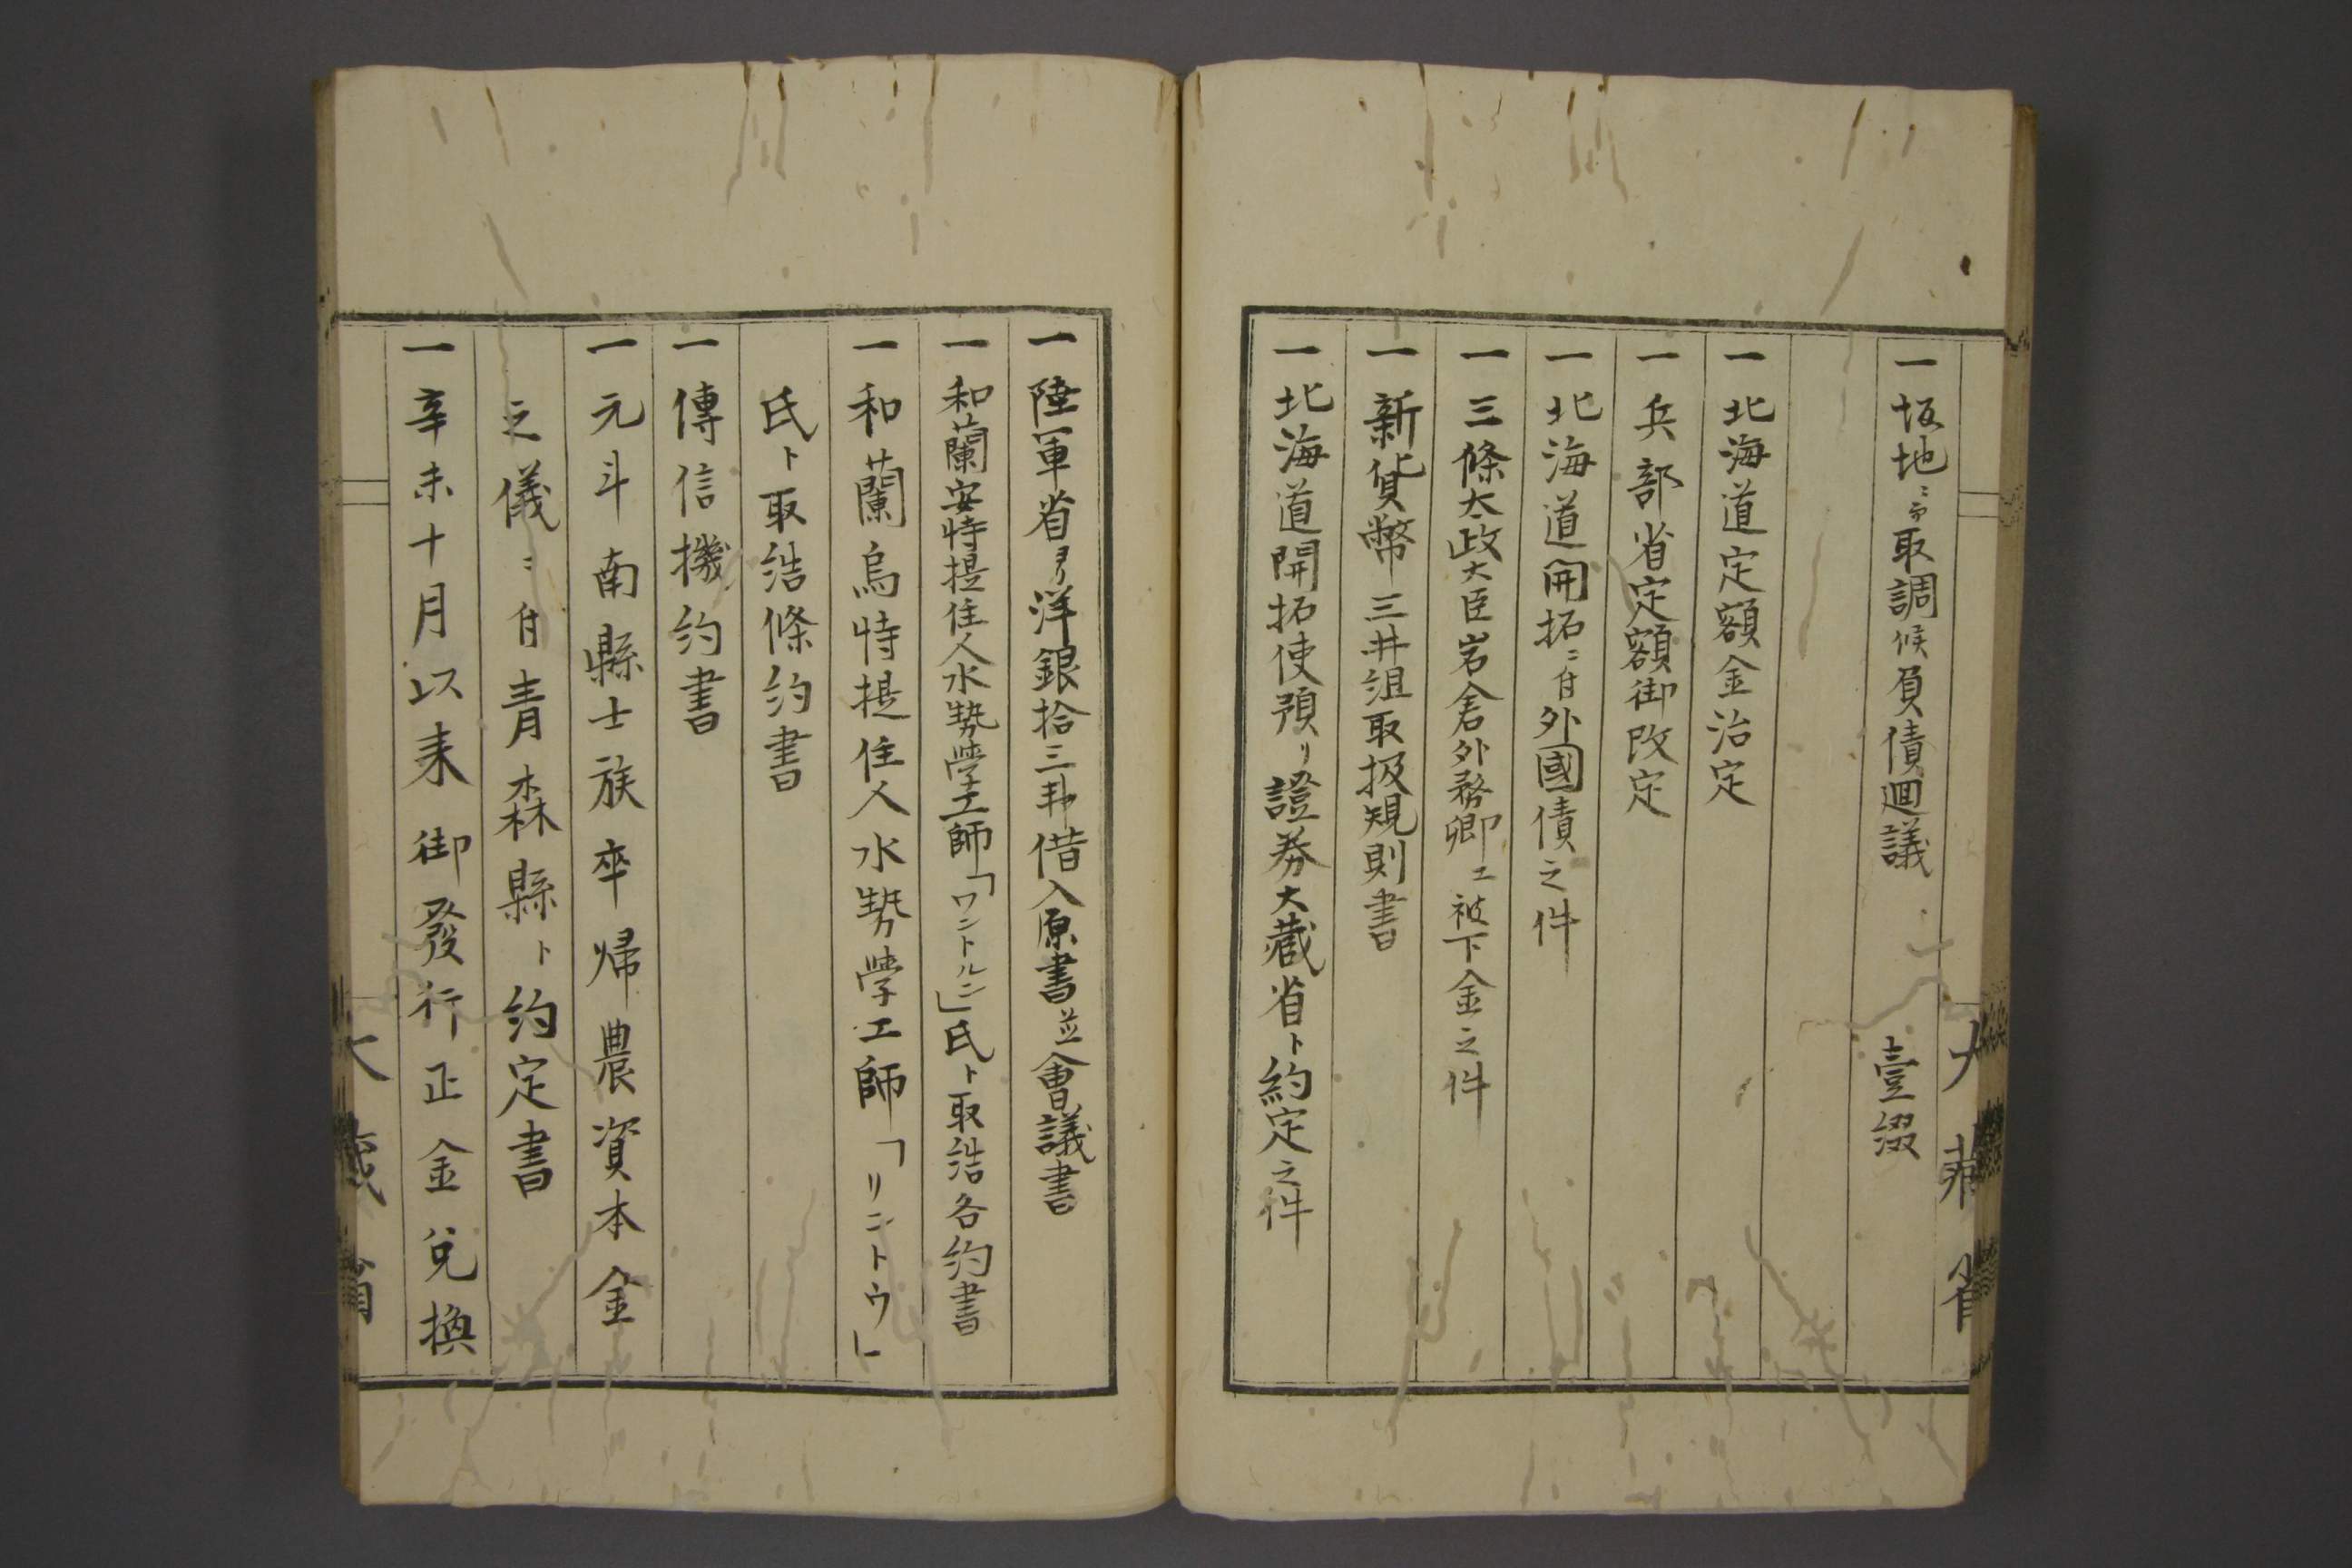 一坂地ニ而取調候負債廻議
壹綴
一北海道定額金治定
一兵部省定額御改定
一北海道開拓ニ付外國債之件
一三條太政大臣岩倉外務卿エ被下金之件
一新貨幣三井組取扱規則書
一北海道開拓使預リ證券大藏省ト約定之件
大藏省
一陸軍省ヨリ洋銀拾三弗借入原書並會議書
一和蘭安特提住人水勢學工師「ワントルン」氏ト取結各約書
一和蘭烏特提住人水勢學工師「リントウ」
氏ト取結條約書
一傳信機約書
一元斗南縣士族卒帰農資本金
之儀ニ付青森縣ト約定書
一辛未十月以来御發行正金兌換
大藏省